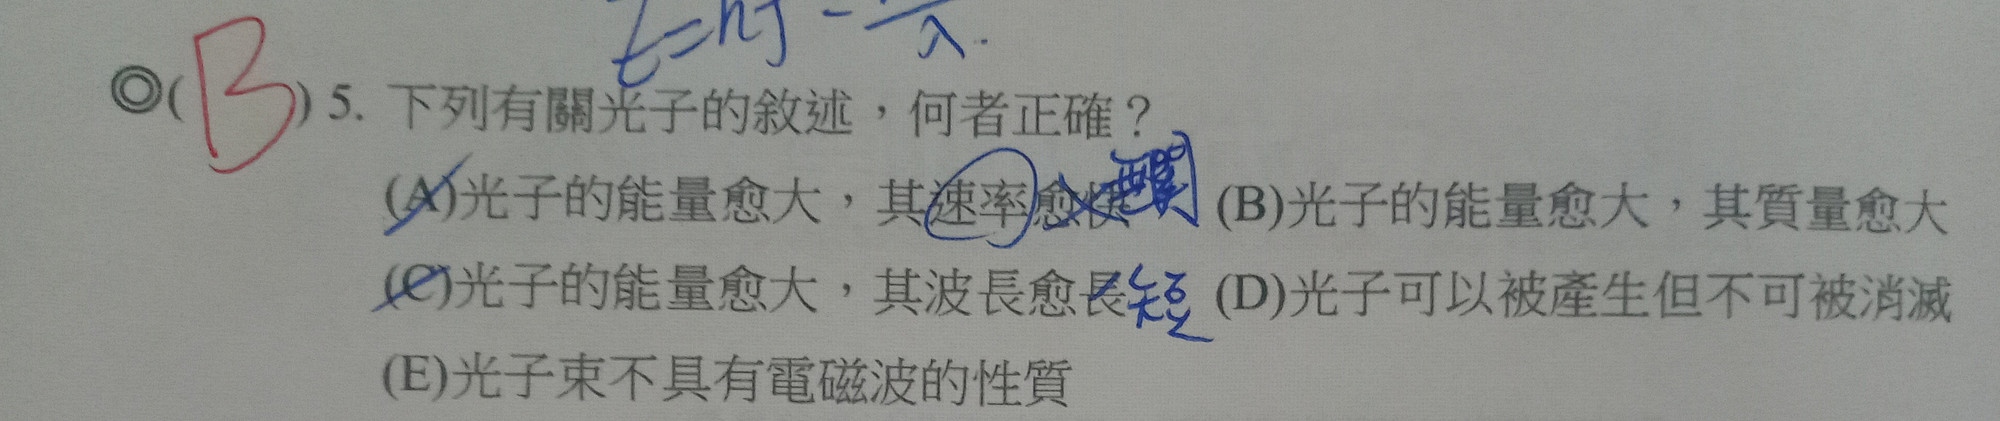 E=hf=
λ
◎(B)5. 下列有關光子的敘述，何者正確？
(A)光子的能量愈大，其速率愈快 (B)光子的能量愈大，其質量愈大
(C)光子的能量愈大，其波長愈長短 (D)光子可以被產生但不可被消滅
(E)光子束不具有電磁波的性質